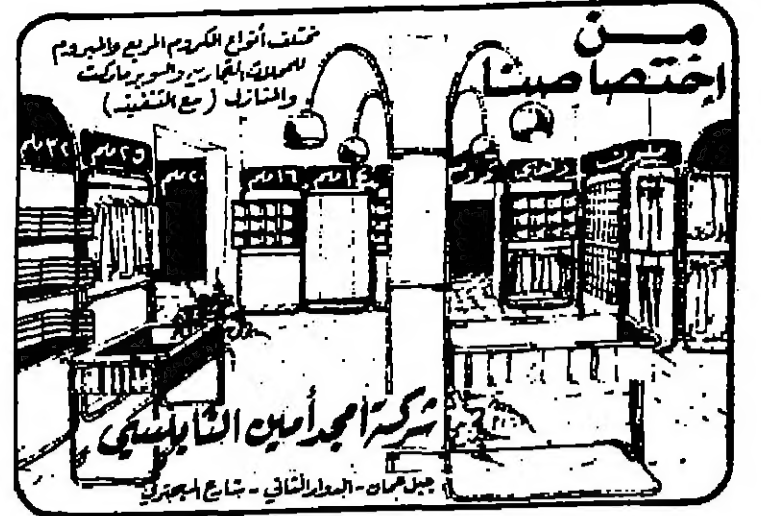 من
إختصاصنا
مختلف أنواع الكروم المربع والمبروم
للمحلات التجارية والسوبرماركت
والمنازل (مع التنفيذ)
٣٢ ملم
٢٥ ملم
٢٠ ملم
١٦ ملم
شركة أمجد أمين النابلسي
جبل عمان - الدوار الثاني - شارع البحتري